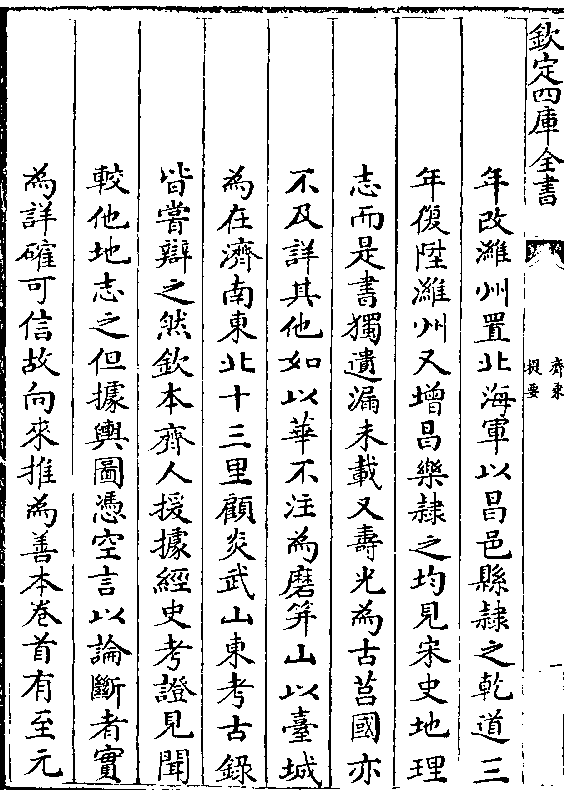 欽定四庫全書
齊乗
提要
年改濰州置北海軍以昌邑縣隷之乾道三
年復陞濰州又增昌樂隷之均見宋史地理
志而是書獨遺漏未載又壽光為古莒國亦
不及詳其他如以華不注為磨笄山以臺城
為在濟南東北十三里顧炎武山東考古録
皆嘗辯之然欽本齊人援據經史考證見聞
較他地志之但據輿圖憑空言以論斷者實
為詳確可信故向來推為善本卷首有至元